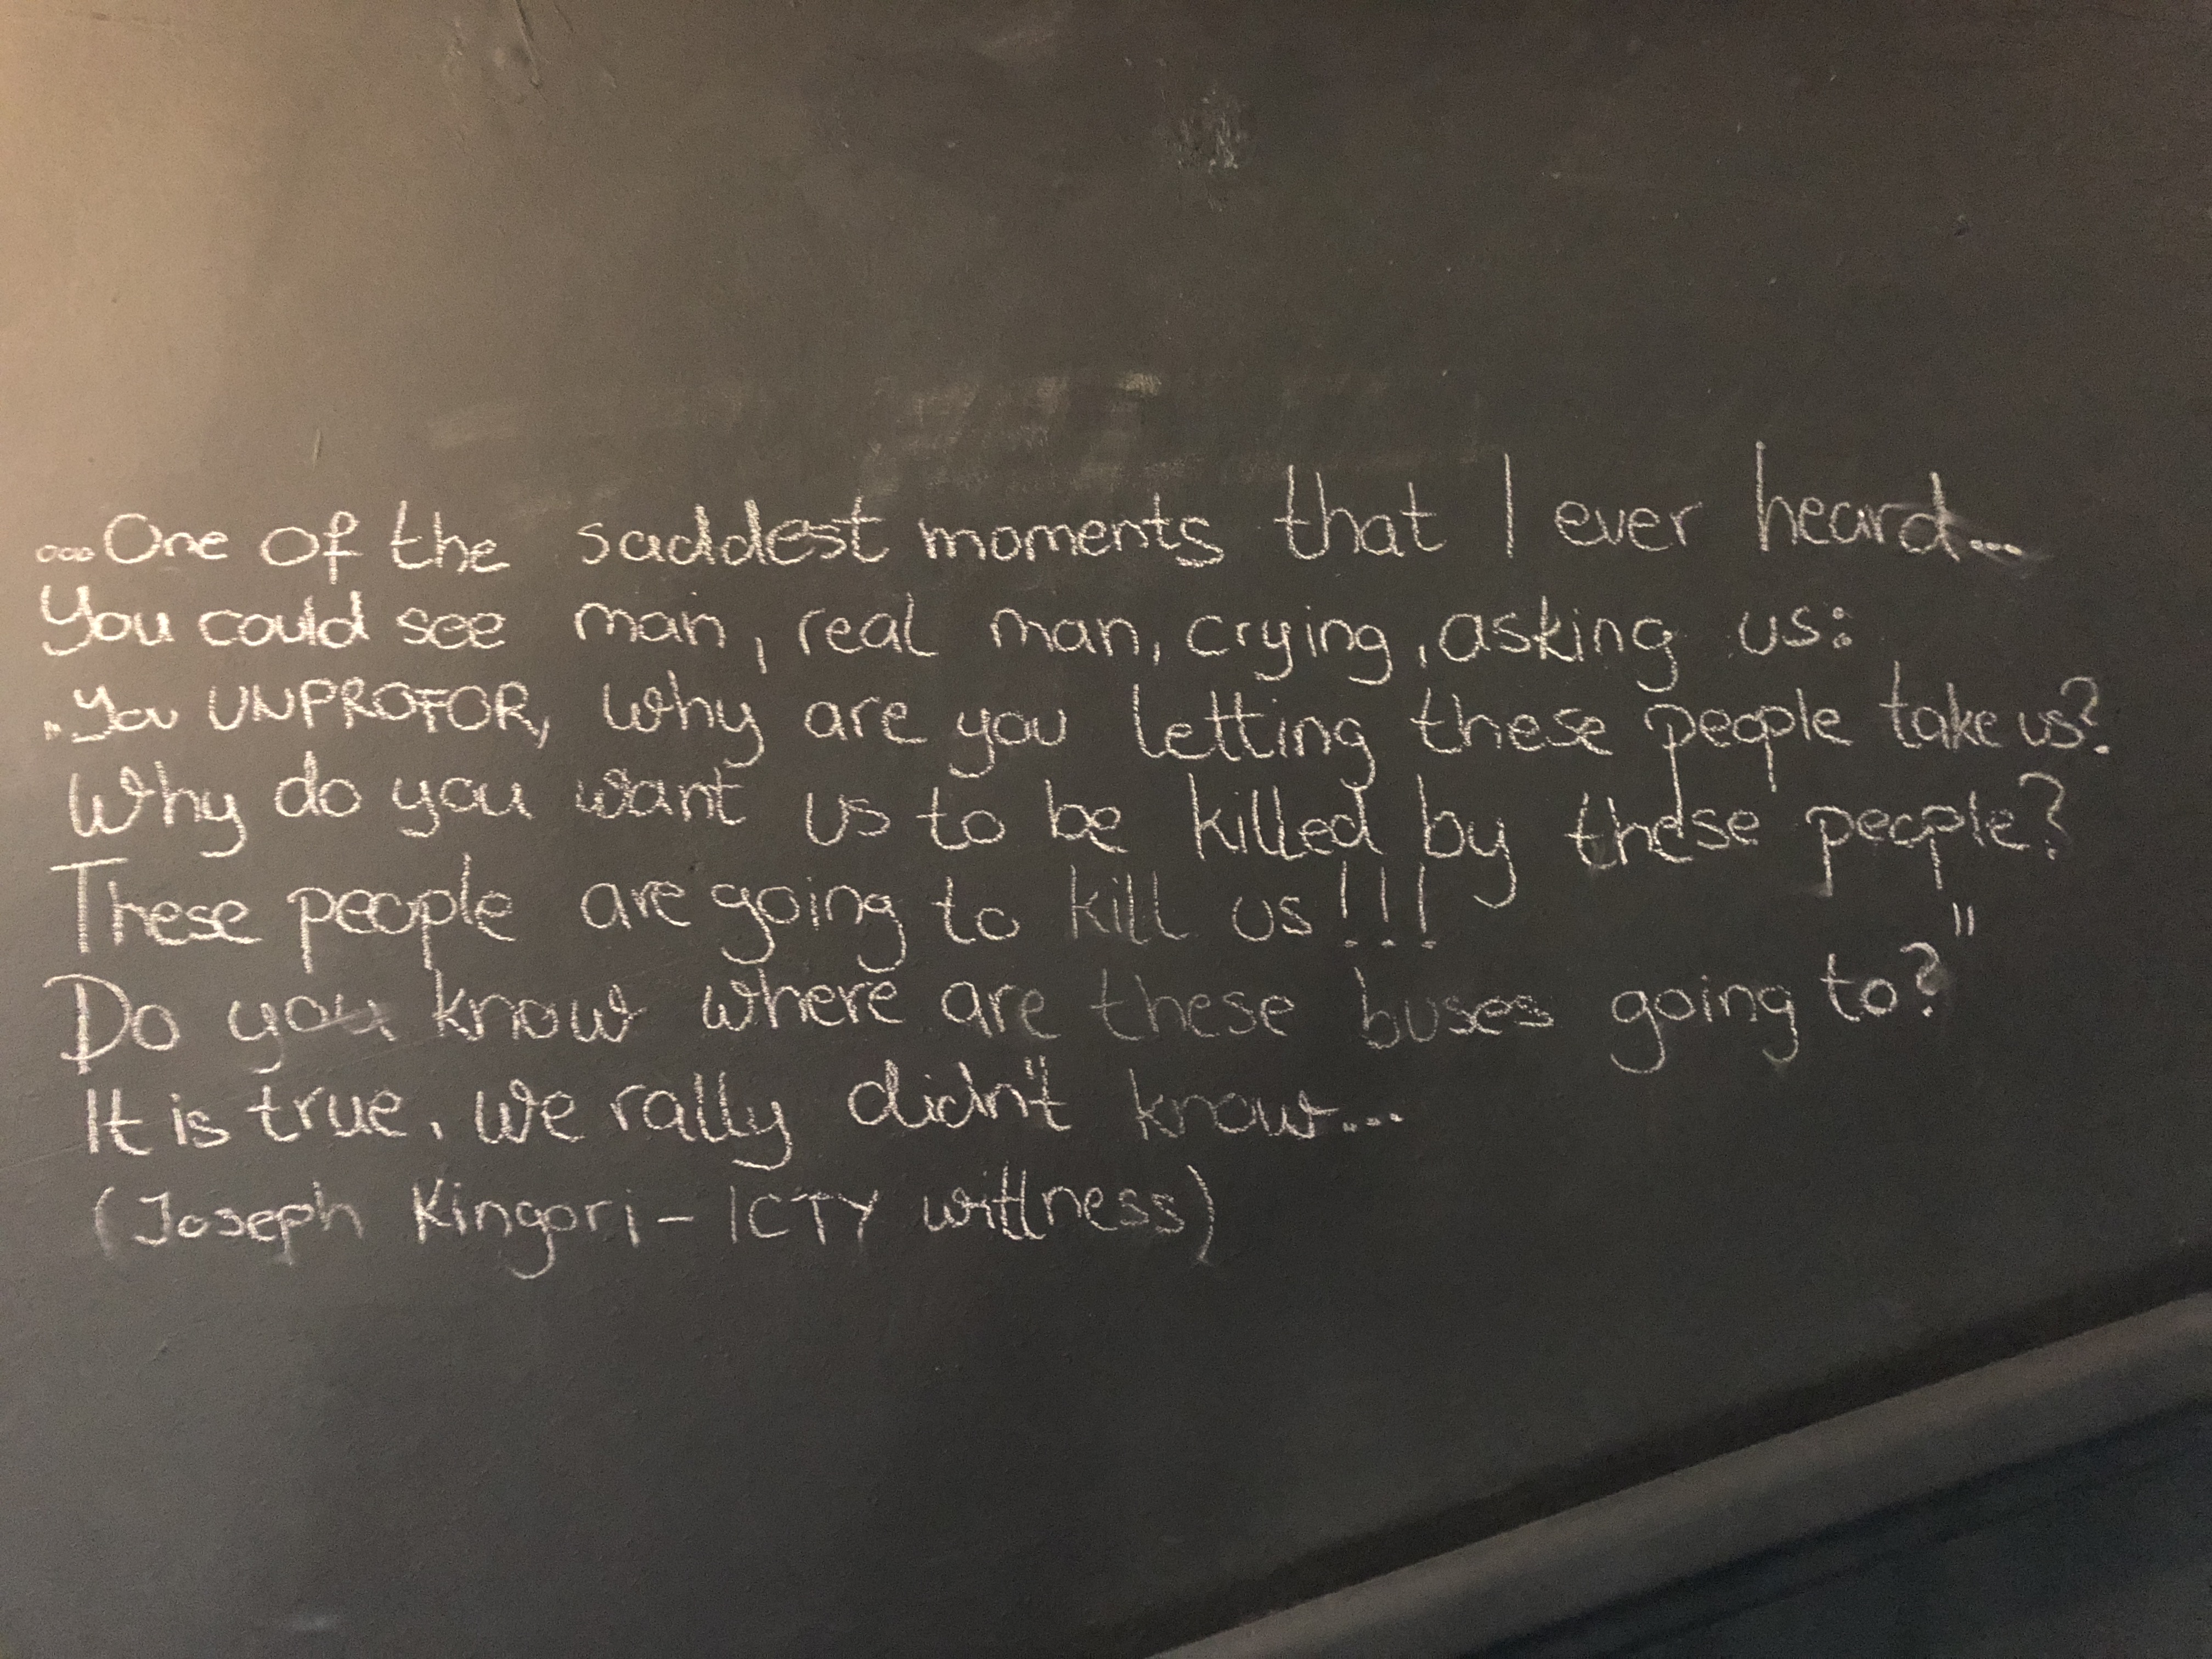 ...One of the saddest moments that I ever heard...
You could see man, real man, crying, asking us:
„You UNPROFOR, why are you letting these people take us?
Why do you want us to be killed by these people?
These people are going to kill us!!!
Do you know where are these buses going to?"
It is true, we rally didn't know...
(Joseph Kingori - ICTY wittness)